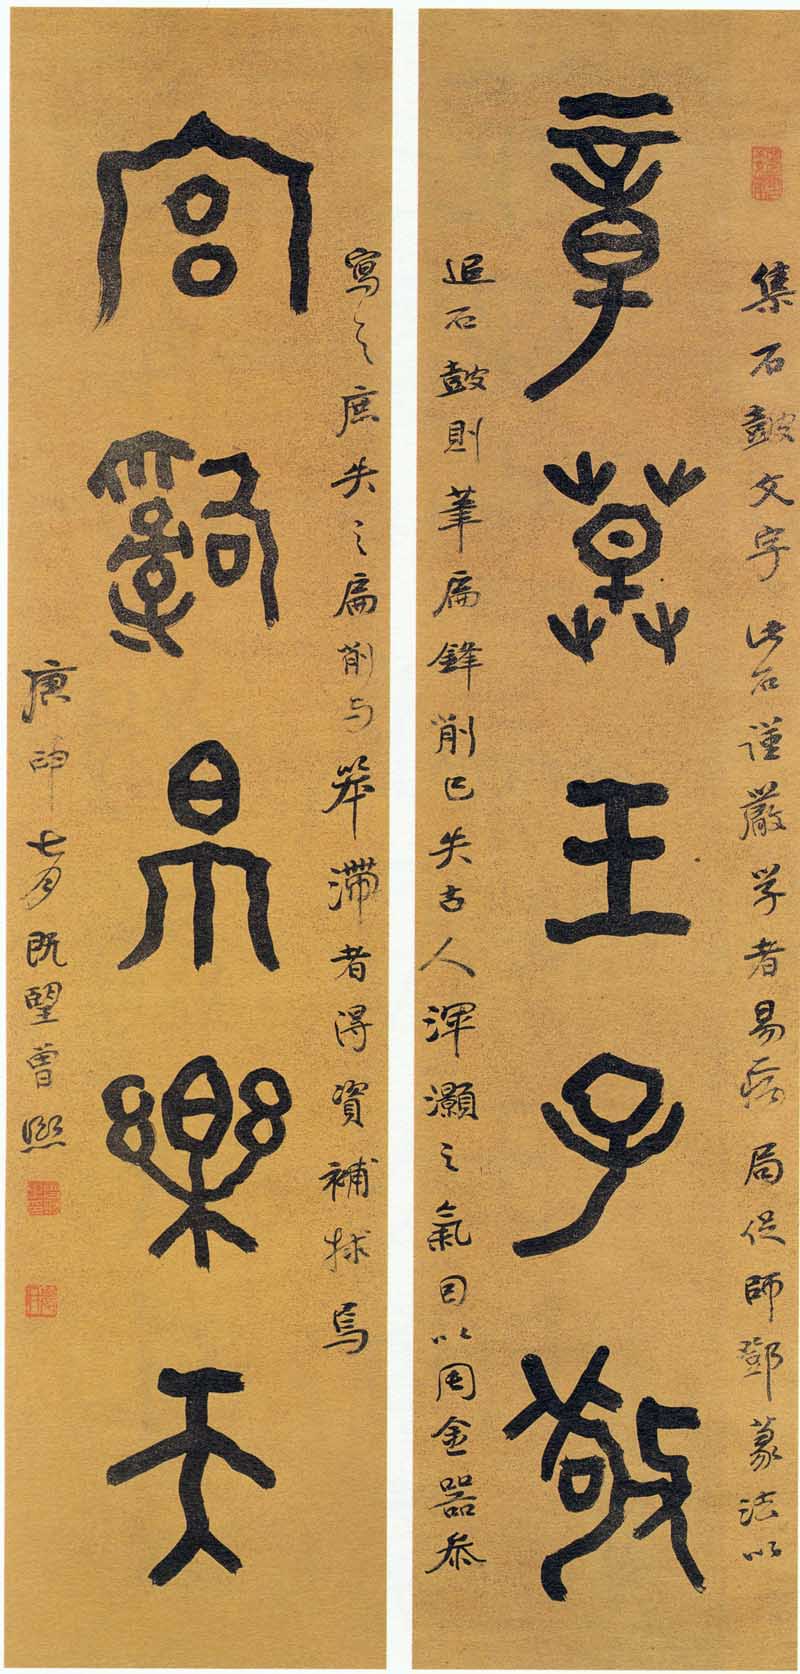 章草王子敬
集石鼓文字此石謹嚴学者易病局促師鄧篆法以
追石鼓則筆扁鋒削已失古人渾灝之氣因以周金器參
宮辭帛樂天
寫之庶失之扁削与笨滯者得資補捄焉
庚申七月既望曾熙